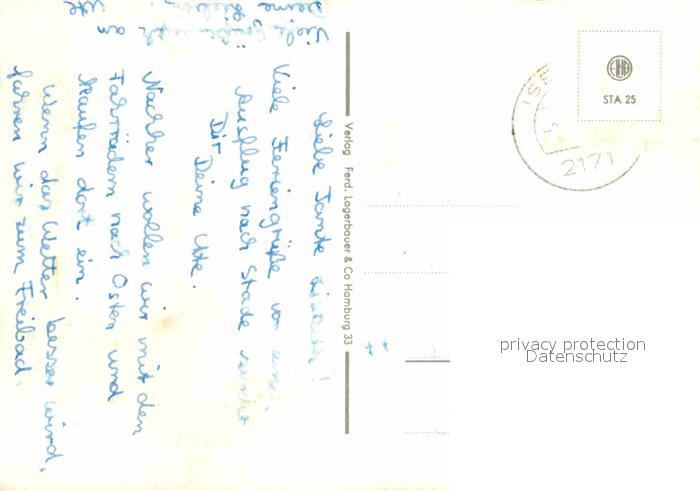 Liebe Tante
Viele Feriengrüße von einem
Ausflug nach Stade
Dir Deine Ute.
Nachher wollen wir mit den
Fahrrädern nach Osten und
kaufen dort ein.
Wenn das Wetter besser wird,
fahren wir zum Freibad.
Viele
Deine
Ute
Verlag Ferd. Lagerbauer & Co Hamburg 33
STA 25
2171
privacy protection
Datenschutz